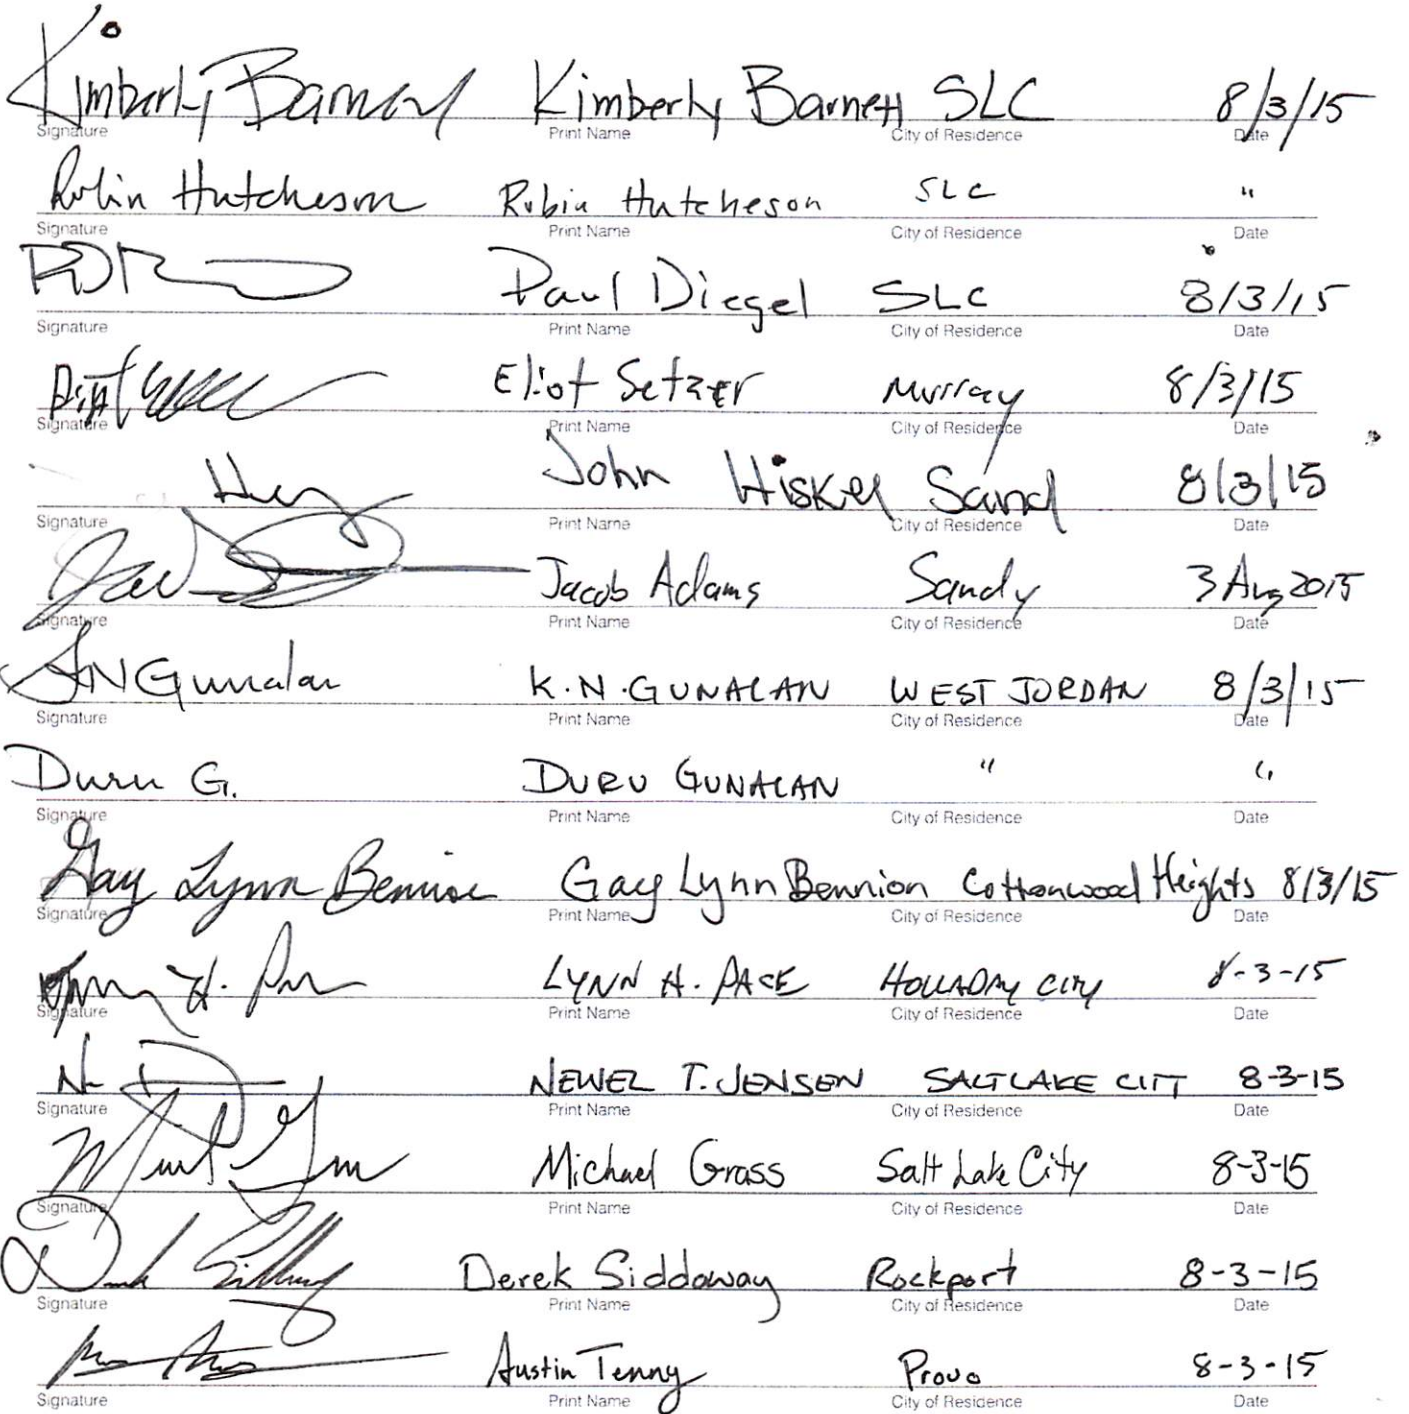 Kimberly Barnett Kimberly Barnett SLC 8/3/15
Signature Print Name City of Residence Date
Robin Hutcheson Robin Hutcheson SLC "
Signature Print Name City of Residence Date
Paul Diegel SLC 8/3/15
Signature Print Name City of Residence Date
Eliot Setzer Murray 8/3/15
Signature Print Name City of Residence Date
John Hiskey Sand 8/3/15
Signature Print Name City of Residence Date
Jacob Adams Sandy 3 Aug 2015
Signature Print Name City of Residence Date
KN Gunalan K.N.GUNALAN WEST JORDAN 8/3/15
Signature Print Name City of Residence Date
Duru G. DURU GUNALAN " "
Signature Print Name City of Residence Date
Gay Lynn Bennion Gay Lynn Bennion Cottonwood Heights 8/3/15
Signature Print Name City of Residence Date
LYNN H. PACE HOLLADAY CITY 8-3-15
Signature Print Name City of Residence Date
NEWEL T. JENSEN SALT LAKE CITY 8-3-15
Signature Print Name City of Residence Date
Michael Grass Salt Lake City 8-3-15
Signature Print Name City of Residence Date
Derek Siddoway Rockport 8-3-15
Signature Print Name City of Residence Date
Austin Tenny Provo 8-3-15
Signature Print Name City of Residence Date